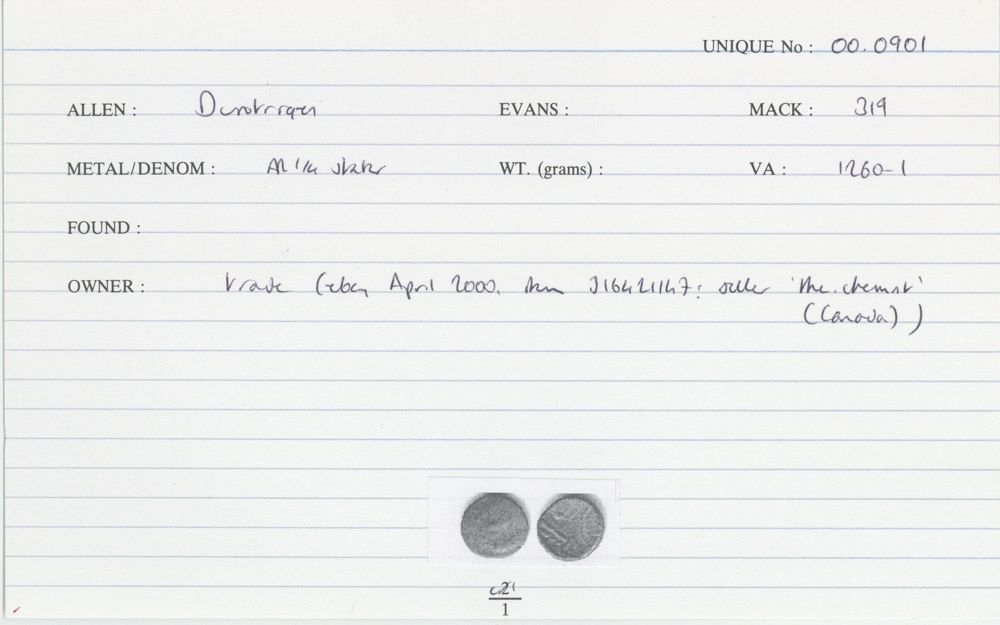 UNIQUE No : 00.0901
ALLEN : Durotriges EVANS : MACK : 319
METAL/DENOM : AR 1/4 stater WT. (grams) : VA : 1260-1
FOUND :
OWNER : trade (ebay April 2000, item 316421147: seller 'the.chemist'
(Canada))
1